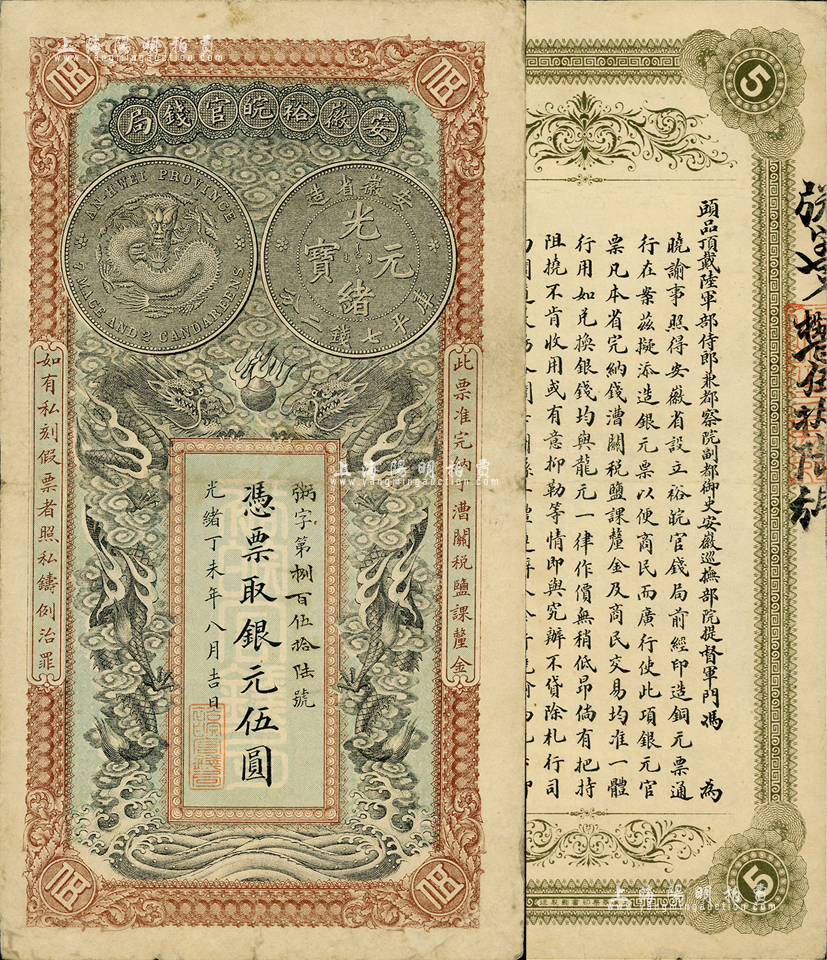 上海陽明拍賣
www.yangmingauction.com
伍
伍
安徽裕皖官錢局
AN-HWEI PROVINCE
7 MACE AND 2 CANDAREENS
安徽省造
光緒元寶
庫平七錢二分
此票准完納丁漕關稅鹽課釐金
如有私刻假票者照私鑄例治罪
上海陽明拍賣
www.yangmingauction.com
粥字第捌百伍拾陸號
憑票取銀元伍圓
光緒丁未年八月吉日
伍
伍
5
頭品頂戴陸軍部侍郎兼都察院副都御史安徽巡撫部院提督軍門馮 為
曉諭事照得安徽省設立裕皖官錢局前經印造銅元票通
行在案茲擬添造銀元票以便商民而廣行使此項銀元官
票凡本省完納錢漕關稅鹽課釐金及商民交易均准一體
行用如兌換銀錢均與龍元一律作價無稍低昂倘有把持
阻撓不肯收用或有意抑勒等情即與究辦不貸除札行司
5
上海陽明拍賣
www.yangmingauction.com